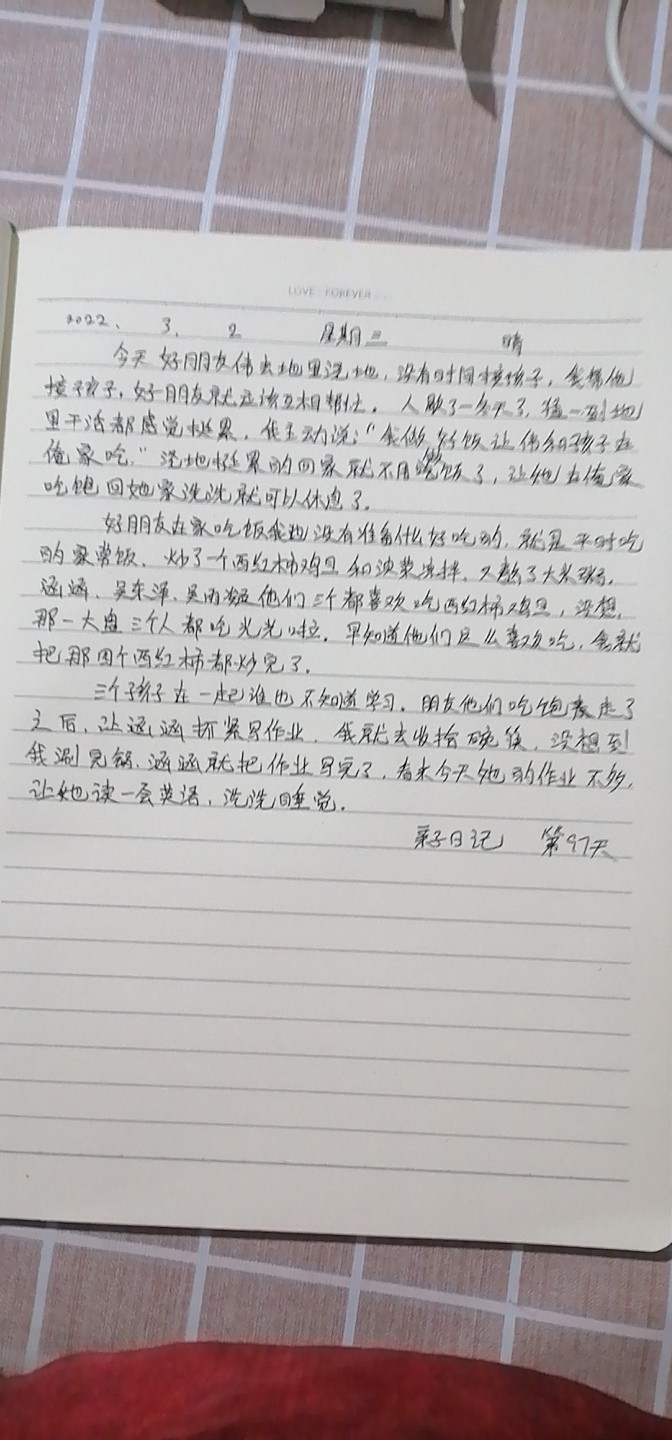 LOVE FOREVER
2022、 3、 2 星期三 晴
今天好朋友伟去地里浇地，没有时间接孩子，我帮他
接孩子，好朋友就应该互相帮忙。人歇了一冬天了，猛一到地
里干活都感觉挺累，我主动说：“我做好饭让伟和孩子在
俺家吃。”浇地挺累的回家就不用做饭了，让她在俺家
吃饱回她家洗洗就可以休息了。
好朋友在家吃饭我也没有准备什么好吃的，就是平时吃
的家常饭，炒了一个西红柿鸡蛋和菠菜凉拌，又熬了大米粥。
涵涵、吴东泽、吴雨 他们三个都喜欢吃西红柿鸡蛋，没想
那一大盘三个人都吃光光啦。早知道他们这么喜欢吃，我就
把那四个西红柿都炒完了。
三个孩子在一起谁也不知道学习。朋友他们吃饱 走了
之后，让涵涵抓紧写作业，我就去收拾碗筷，没想到
我涮完锅，涵涵就把作业写完了，看来今天她的作业不多，
让她读一会英语，洗洗睡觉。
亲子日记 第97天